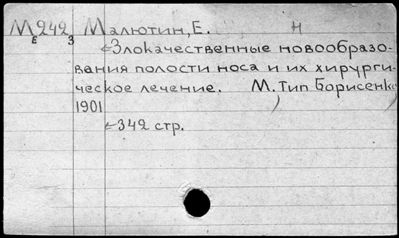 М 242 Малютин, Е. Н
Е 3
Злокачественные новообразо-
вания полости носа и их хирурги-
ческое лечение. М. Тип Борисенко
1901
342 стр.